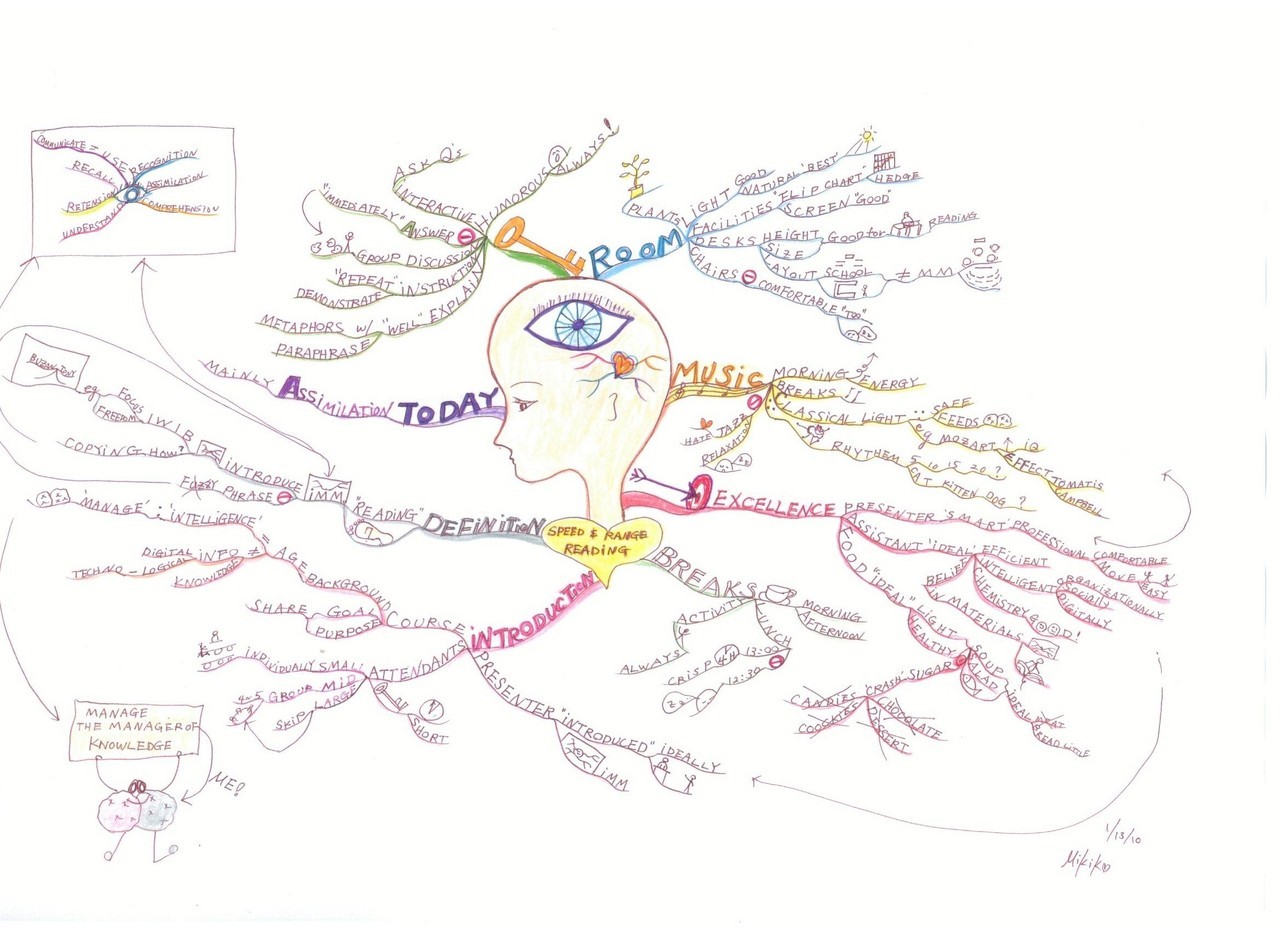 COMMUNICATE = USE
RECOGNITION
RECALL
ASSIMILATION
RETENSION
COMPREHENSION
UNDERSTAND
ASK Q's
INTERACTIVE
HUMOROUS
ALWAYS!
"IMMEDIATELY" ANSWER
GROUP DISCUSSION
"REPEAT" INSTRUCTION
DEMONSTRATE
METAPHORS w/ "WELL" EXPLAIN
PARAPHRASE
ROOM
PLANTS
LIGHT
GOOD
NATURAL 'BEST'
FACILITIES "FLIP CHART" HEDGE
SCREEN "GOOD"
DESKS HEIGHT GOOD for READING
SIZE
LAYOUT SCHOOL ≠ MM
CHAIRS COMFORTABLE "TOO"
MUSIC
MORNING
ENERGY
BREAKS
CLASSICAL LIGHT ∵ SAFE
FEEDS
eg MOZART iQ
EFFECT TOMATIS
CAMPBELL
RHYTHEM 5 10 15 20 ?
CAT KITTEN DOG ?
HATE JAZZ
RELAXATION
MAINLY
ASSIMILATION TODAY
BUZAN, TONY
eg
FOCUS
FREEDOM
I W I B
COPYING HOW?
INTRODUCE
Fuzzy PHRASE
iMM
"READING"
DEFINITION
SPEED & RANGE
READING
EXCELLENCE
PRESENTER 'SMART' PROFESSIONAL
COMFORTABLE
MOVE
EASY
ASSISTANT 'IDEAL' EFFICIENT
BELIEF
IN MATERIALS
INTELLIGENT
ORGANIZATIONALLY
SOCIALLY
DIGITALLY
CHEMISTRY GOOD!
FOOD "IDEAL" LIGHT
HEALTHY
SOUP
SALAD
IDEAL MEAT
BREAD LITTLE
SUGAR
'CRASH'
CANDIES
COOKIES
CHOCOLATE
DESERT
BREAKS
MORNING
AFTERNOON
ACTIVITY
ALWAYS
LUNCH
CRISP 4H 13:00
12:30
INTRODUCTION
'MANAGE' ∵ 'INTELLIGENCE'
=
DIGITAL INFO ≠ AGE
TECHNO-LOGICAL
KNOWLEDGE
BACKGROUND
SHARE GOAL
PURPOSE
COURSE
8
INDIVIDUALLY SMALL
4~5 GROUP MID
SKIP LARGE
ATTENDANTS
SHORT
PRESENTER "INTRODUCED" IDEALLY
iMM
MANAGE
THE MANAGER OF
KNOWLEDGE
ME!
1/13/10
Mikiko